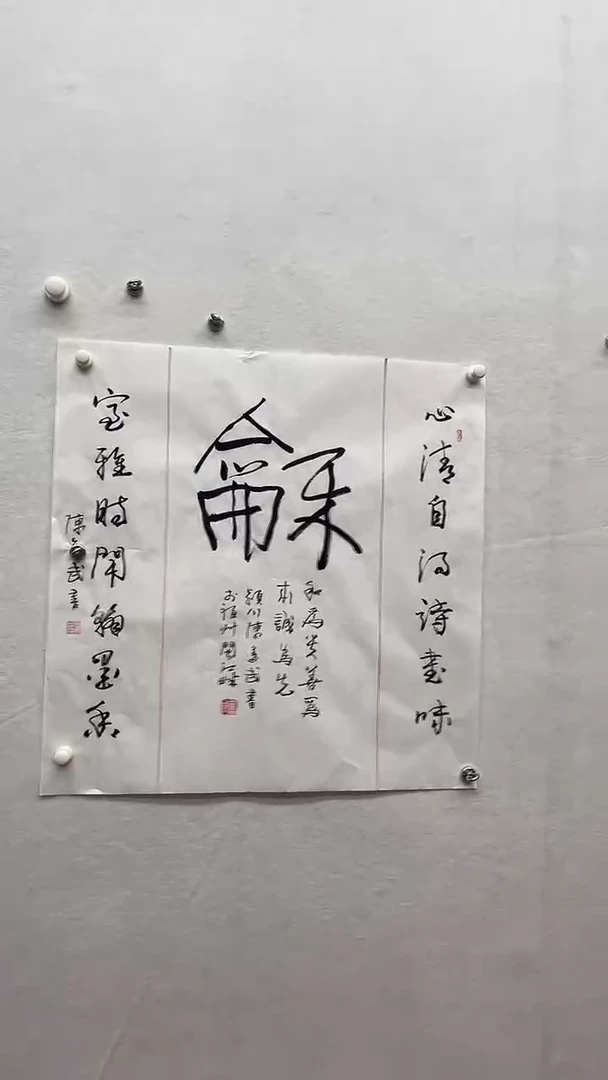 心清自得詩書味
龢
和為貴善為
本誠為先
潁川陳 武書
於福州閩江畔
室雅時聞翰墨香
陳 武書